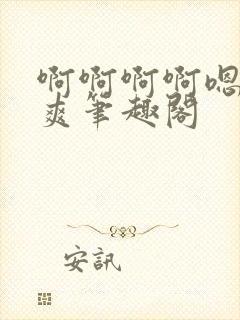 啊啊啊啊嗯
爽笔趣阁
安訊